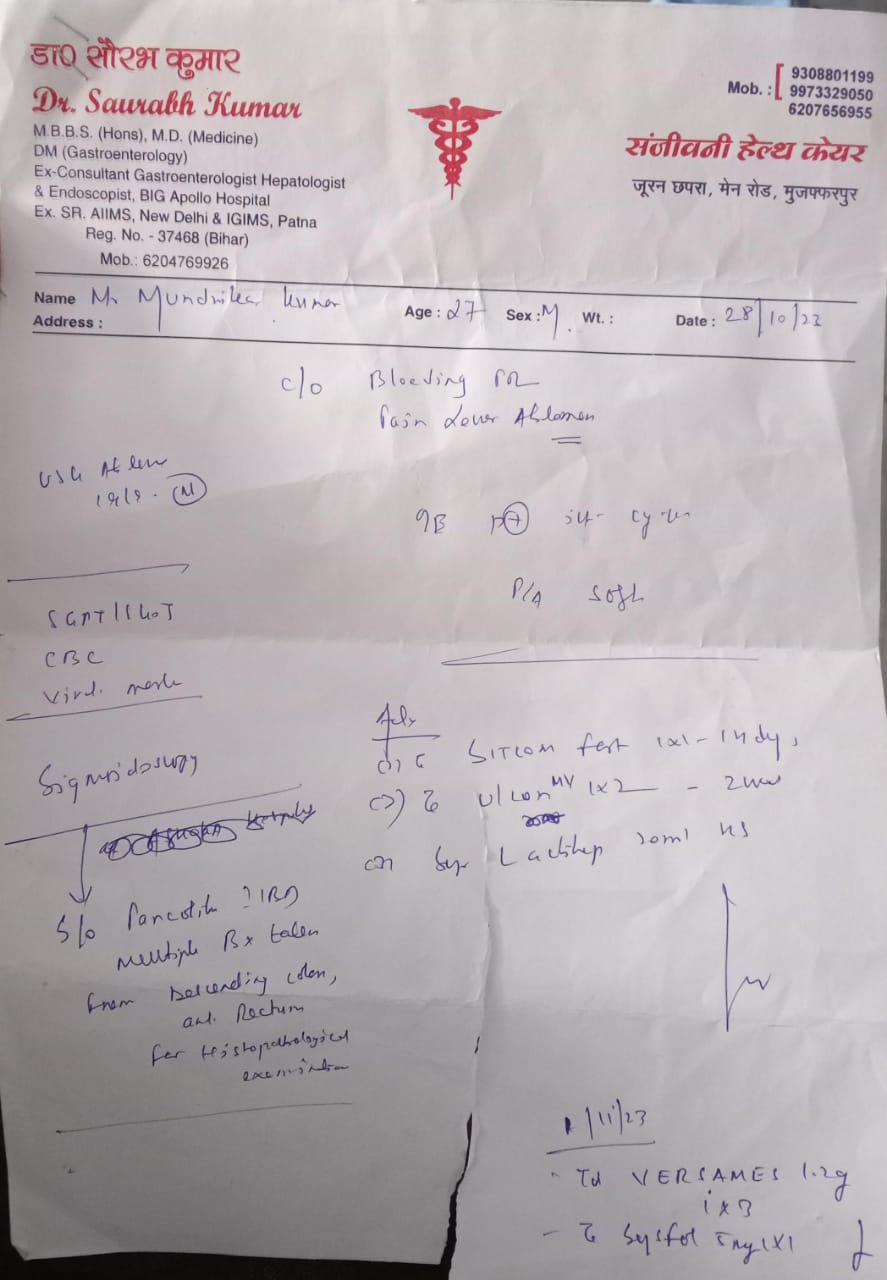 डा0 सौरभ कुमार
Dr. Saurabh Kumar
M.B.B.S. (Hons), M.D. (Medicine)
DM (Gastroenterology)
Ex-Consultant Gastroenterologist Hepatologist
& Endoscopist, BIG Apollo Hospital
Ex. SR. AIIMS, New Delhi & IGIMS, Patna
Reg. No. - 37468 (Bihar)
Mob.: 6204769926
Mob. : 9308801199
9973329050
6207656955
संजीवनी हेल्थ केयर
जूरन छपरा, मेन रोड, मुजफ्फरपुर
Name Mr Mundrika Kumar Age : 27 Sex : M. Wt. : Date : 28/10/23
Address :
c/o Bleeding PR
Pain Lower Abdomen
USG Abdomen
(N)
P/A Soft
SGPT/SGOT
CBC
Viral mark
Sigmoidoscopy
S/o Pancolitis ? IBD
Multiple Bx taken
from Descending colon,
and Rectum
for Histopathological
examination
Adv
SITCOM fort 1x1 - 14 dys
1x2
Syp
HS
/11/23
VERSAMES 1.2g
1 x 3
5mg 1x1